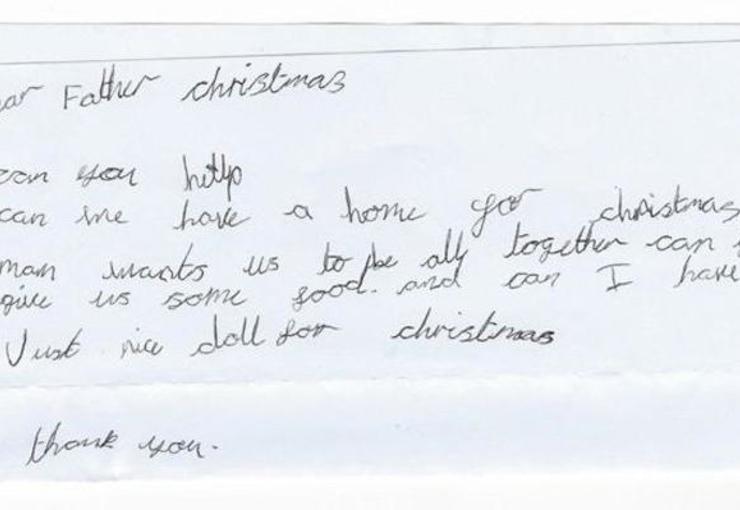 ear Father christmas
can you help
can we have a home for christmas
mam wants us to be all together can
give us some food. and can I have
Just nice doll for christmas
thank you.